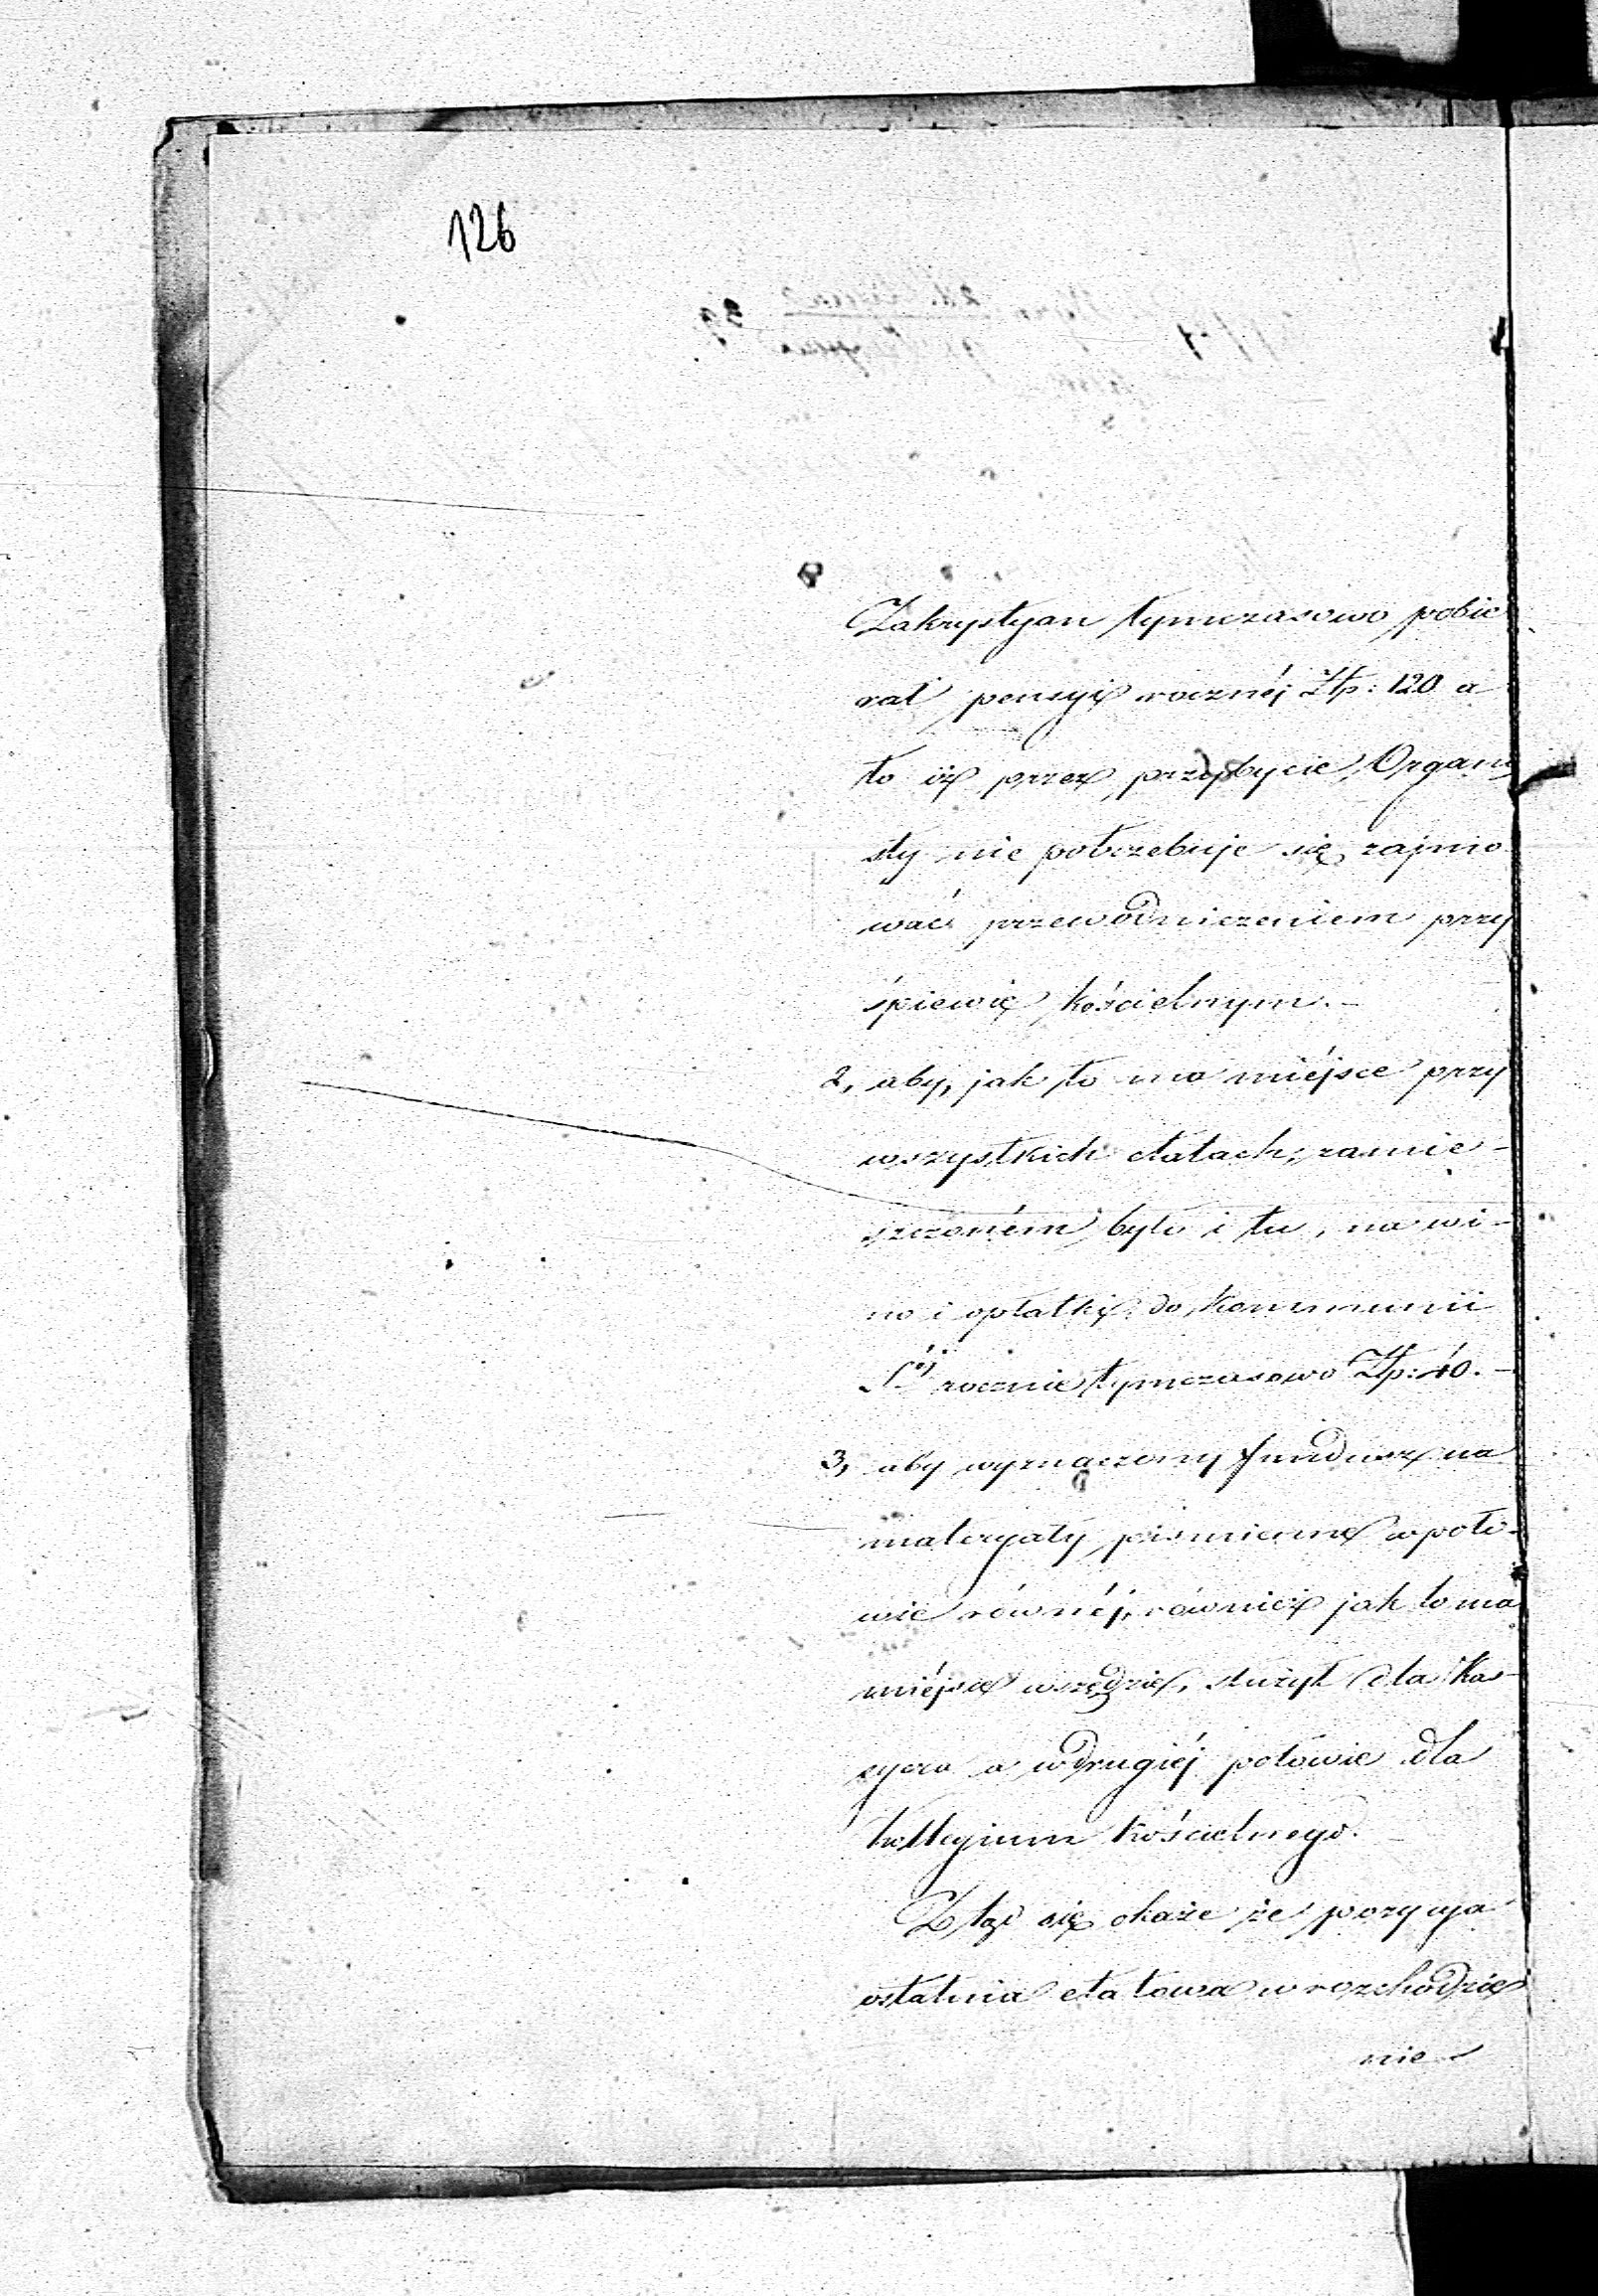 126
Zakrystyan tymczasowo pobie
rał pensyi rocznéj Złp: 120 a
to iż przez przybycie Organi
sty nie potrzebuje się zajmo
wać przewodniczeniem przy
śpiewie kościelnym. –
2, aby, jak to ma miéjsce przy
wszystkich etatach, zamie –
szczoném było i tu, na wi –
no i opłatki do kommunii
Sej rocznie tymczasowo Złp: 40. –
3, aby wyznaczony fundusz na
materyały piśmienne w poło –
wie równéj, również jak to ma
miéjsce wszędzie, służył dla Kas –
syera a w drugiéj połowie dla
kollegium kościelnego. –
Z tąd się okaże że pozycya
ostatnia etatowa w rozchodzie
nie